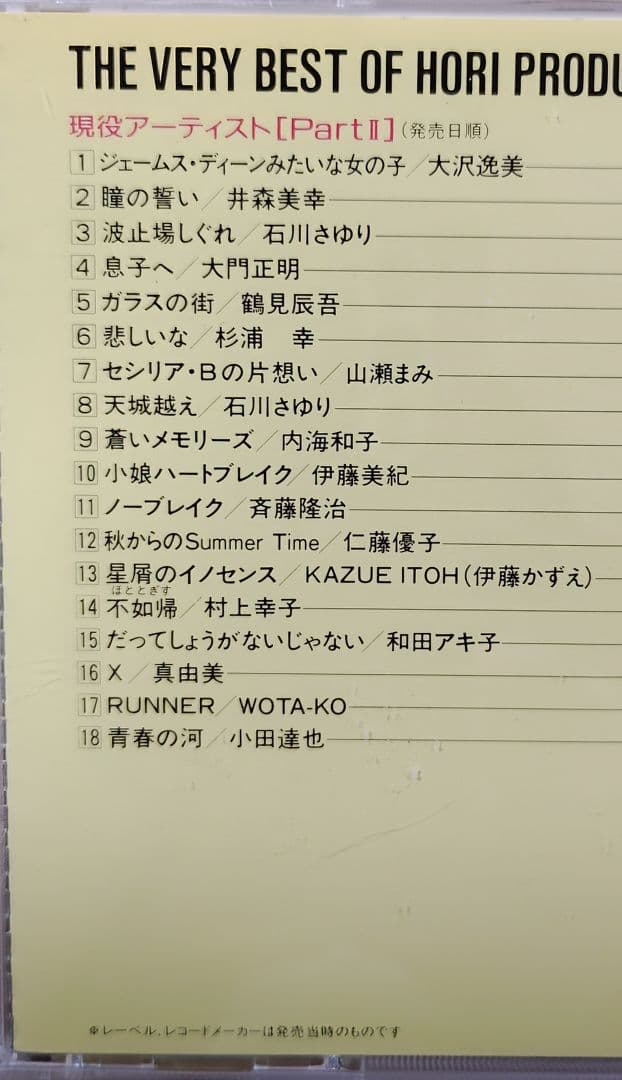 THE VERY BEST OF HORI PRODU
現役アーティスト[PartⅡ](発売日順)
1 ジェームス・ディーンみたいな女の子／大沢逸美
2 瞳の誓い／井森美幸
3 波止場しぐれ／石川さゆり
4 息子へ／大門正明
5 ガラスの街／鶴見辰吾
6 悲しいな／杉浦 幸
7 セシリア・Bの片想い／山瀬まみ
8 天城越え／石川さゆり
9 蒼いメモリーズ／内海和子
10 小娘ハートブレイク／伊藤美紀
11 ノーブレイク／斉藤隆治
12 秋からのSummer Time／仁藤優子
13 星屑のイノセンス／KAZUE ITOH(伊藤かずえ)
ほととぎす
14 不如帰／村上幸子
15 だってしょうがないじゃない／和田アキ子
16 X／真由美
17 RUNNER／WOTA-KO
18 青春の河／小田達也
※レーベル、レコードメーカーは発売当時のものです